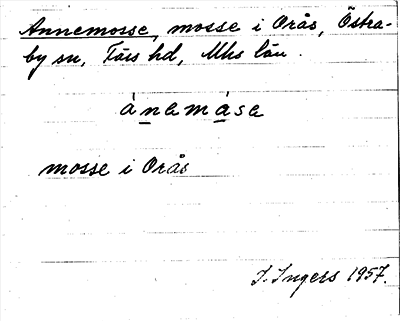 Annemosse, mosse i Orås, Östra-
by sn, Färs hd, Mhs län.
ánamåsa
mosse i Orås
I. Ingers 1957.